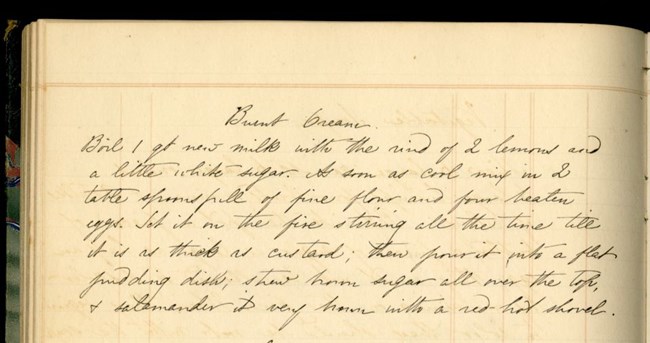 Burnt Cream
Boil 1 qt new milk with the rind of 2 lemons and
a little white sugar. As soon as cool mix in 2
table spoonsfull of fine flour and four beaten
eggs. Set it on the fire stirring all the time till
it is as thick as custard; then pour it into a flat
pudding dish; strew brown sugar all over the top,
& salamander it very brown with a red-hot shovel.